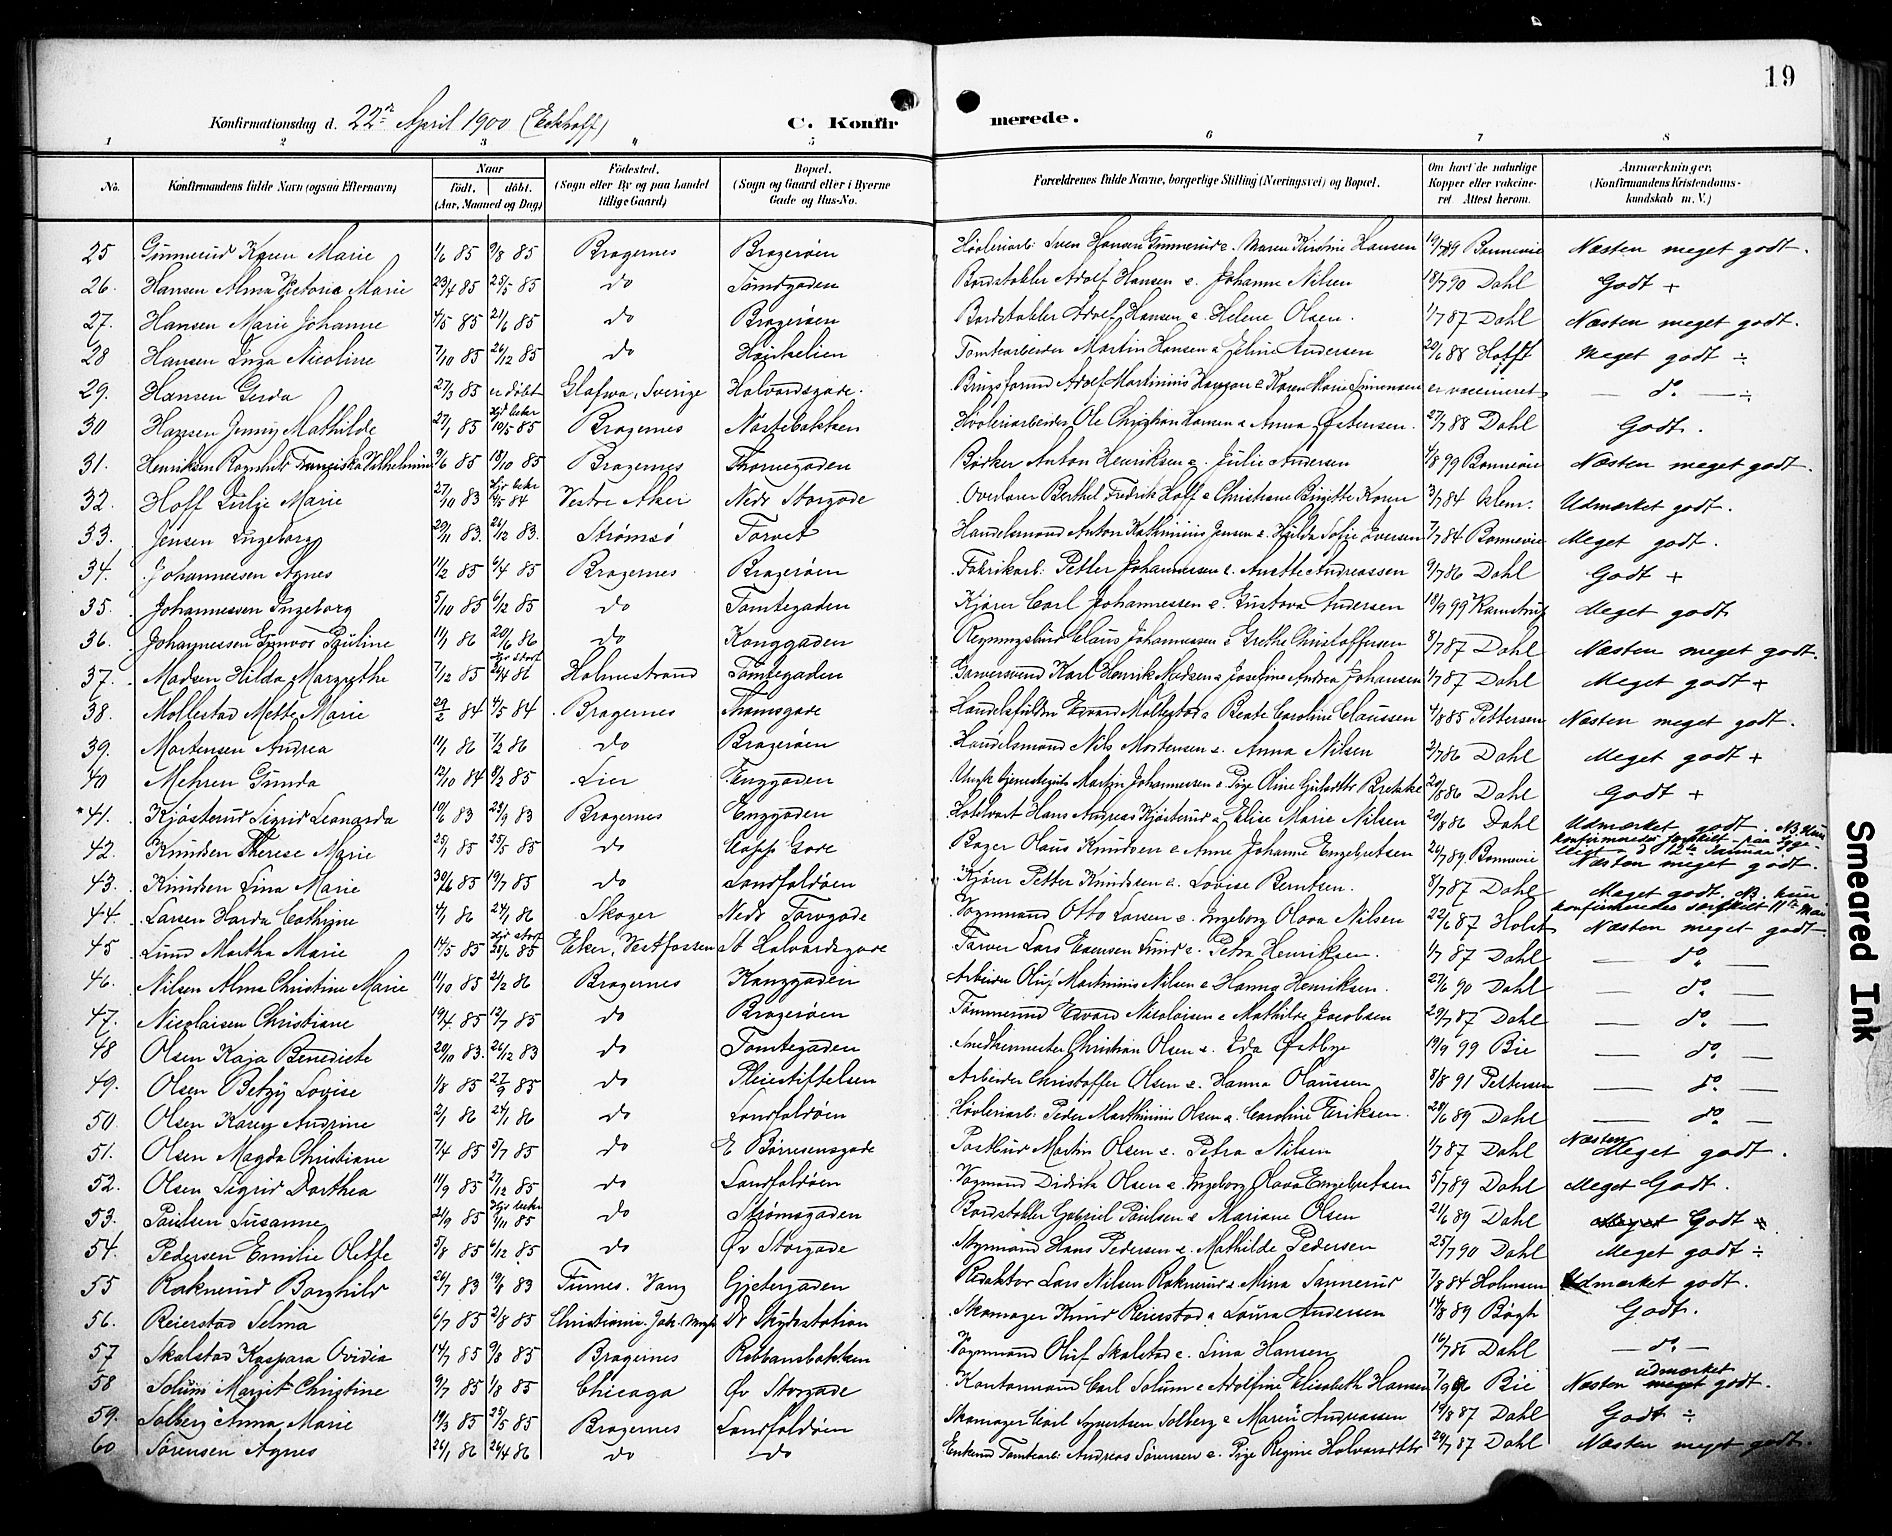 19
Konfirmationsdag d. 22de April 1900 (Eckhoff)
C. Konfirmerede.
1 2 3 4 5 6 7 8
No. Konfirmandens fulde Navn (ogsaa Efternavn) Naar født, døbt. (Aar, Maaned og Dag) Fødested. (Sogn eller By og paa Landet tillige Gaard) Bopæl. (Sogn og Gaard eller i Byerne Gade og Hus-No. Forældrenes fulde Navne, borgerlige Stilling (Næringsvei) og Bopæl. Om havt de naturlige Kopper eller vaccineret. Attest herom. Anmærkninger. (Konfirmandens Kristendomskundskab m. V.)
25 Gunnerud Karen Marie 1/6 85 9/8 85 Bragernes Bragerøen Høvleriarb. Sven Hansen Gunnerud e. Maren Kirstine Hansen 19/7 89 Bonnevie Næsten meget godt.
26. Hansen Alma Victoria Marie 23/4 85 25/5 85 do Tomtgaden Bordstabler Adolf Hansen e. Johanne Nilsen 18/7 90 Dahl Godt +
27. Hansen Marie Johanne 4/5 85 21/6 85 do Bragerøen Bordstabler Adolf Hansen e. Helene Olsen. 1/7 87 Dahl Næsten meget godt.
28 Hansen Inga Nicoline 7/10 85 26/12 85 do Tomtearbeider Martin Hansen e Eline Andersen 20/6 88 Hofft Meget godt ÷
29. Hansen Gerda 27/3 85 er døbt Glafva, Sverige Halvardsgade. Adolf Martinius Hansen e Karen Marie Simensen er vaccineret — do. — ÷
30 Hansen Jenny Mathilde 27/1 85 Hjd bekr 10/5 85 Bragernes Nøstebakken Høvleriarbeider Ole Christian Hansen e Anna Østensen. 27/7 88 Dahl Godt.
31. Henriksen Ragnhild Franciska Vilhelmine 9/6 85 18/10 85 Bragernes Thomegaden Bødker Anton Henriksen e. Julie Andersen 4/8 99 Bonnevie Næsten meget godt.
32. Hoff Lulje Marie 27/10 83 Hjd bekr 4/5 84 Vestre Aker Nedr Storgade Overlærer Berthel Fredrik Hoff e Christiane Birgitte Koren 3/7 84 Klem. Udmærket godt.
33. Jensen Ingeborg 29/11 83. 26/12 83. Strømsø Torvet Handelsmand Anton Kathinius Jensen e. Hulda Sofie Iversen 7/7 84 Bonnevie Meget godt.
34. Johannessen Agnes 11/2 85 6/4 85 Bragernes Bragerøen Fabrikarb. Petter Johannessen e. Anette Andreassen 9/7 86 Dahl Godt +
35. Johannessen Ingeborg 5/10 85 6/12 85 do Tomtegaden Kjører Carl Johannessen e. Gustava Andersen 18/9 99 Ramstrup Meget godt
36. Johannessen Gunvor Pauline 11/1 86 20/6 86 do Konggaden Claus Johannessen e Grethe Christoffersen 8/7 87 Dahl Næsten meget godt.
37. Madsen Hilda Margrethe 7/12 85 26/4 86 Holmestrand Tomtegaden Garversvend Karl Henrik Madsen e Josefine Andrea Johansen 1/7 87 Dahl Meget godt +
38. Møllestad Mette Marie 29/2 84 4/5 84 Bragernes Thomsgade Edvard Møllestad e Beate Caroline Claussen 4/8 85 Pettersen Næsten meget godt.
39. Mortensen Andrea 11/1 86 7/2 86 do Bragerøen Handelsmand Nils Mortensen e. Anna Nilsen 2/7 86 Dahl Meget godt +
40 Mehren Gunda 12/10 84 8/2 85 Lier Enggaden Ungk tjenestegut Martin Johannessen e Pige Oline Brekke 20/8 86 Dahl Godt +
*41. Kjøsterud Sigrid Leonarda 10/6 83 23/9 83 Bragernes Enggaden Hans Andreas Kjøsterud e Elise Marie Nilsen 20/8 86 Dahl Udmærket godt. NB. Hun konfirmeredes særskilt paa Syge-
42. Knudsen Therese Marie 25/1 85 25/5 85 do Claps Gade Bager Olaus Knudsen e Anne Johanne Engebretsen 26/7 89 Bonnevie Næsten meget godt.
43. Knudsen Lina Marie 30/6 85 19/7 85 do Landfaldøen Kjører Petter Knudssen e. Lovise Berntsen. 8/7 87 Dahl Meget godt. NB. hun konfirmeredes særskilt 11te Mai
44. Larsen Harda Cathrine 4/1 86 24/1 86 Skoger Nedr Torvgade Vognmand Otto Larsen e. Ingeborg Olava Nilsen 22/6 87 Holst Næsten meget godt.
45 Lund Martha Marie 14/5 85 85 Eker, Vestfossen St Halvardsgade Farver Lars Evensen Lund e. Petra Henriksen. 1/7 87 Dahl — do. —
46. Nilsen Alma Christine Marie 11/10 85 21/2 86 Bragernes Konggaden Arbeider Oluf Martinius Nilsen e Hanna Henriksen. 27/6 90 Dahl — do. —
47. Nicolaisen Christiane 19/4 85 12/7 85 do Bragerøen Tømmermd Edvard Nicolaisen e Mathilde Jacobsen 29/7 87 Dahl — do. —
48 Olsen Kaja Benedicte 20/10 83. 26/12 83 do Tomtegaden Snedkermester Christian Olsen e. Eda Østbye 19/9 99 Bie — do. —
49. Olsen Betzy Lovise 1/8 85 27/9 85 do Pleiestiftelsen Arbeider Christoffer Olsen e. Hanna Olaussen 8/8 91 Pettersen — do. —
50. Olsen Karen Andrine 2/1 86 24/1 86 do Landfaldøen Høvleriarb. Peder Marthinius Olsen e. Caroline Eriksen. 20/6 89 Dahl — do. —
51. Olsen Magda Christiane 7/4 85 5/7 85 do E Børresensgade Postbud Martin Olsen e. Petra Nilsen 1/7 87 Dahl Næsten Meget godt.
52. Olsen Sigrid Dorthea 11/9 85 27/12 85 do Landfaldøen Vognmand Didrik Olsen e. Ingeborg Olava Engebretsen 5/7 89 Dahl Meget Godt.
53. Paulsen Susanne 21/9 85 Hjd bekr 85 do Strømsgaden Bordstabler Gabriel Paulsen e Mariane Olsen 21/6 89 Dahl Meget Godt
54. Pedersen Emilie Olette 5/8 85 6/12 85 do Øv Storgade Styrmand Hans Pedersen e. Mathilde Pedersen 25/7 90 Dahl Meget godt ÷
55 Raknerud Borghild 26/7 83 19/8 83 Furnes. Vang Gjetergaden Redaktør Lars Nilsen Raknerud e Mina Sannerud 7/8 84 Holmsen Udmærket godt.
56. Reierstad Selma 6/7 85 2/8 85 Christiania. Dr Skydsstation Skomager Knud Reierstad e Laura Andersen 14/8 89 Bøgh Godt.
57 Skalstad Kaspara Ovidia 14/7 85 9/8 85 Bragernes Vognmand Oluf Skalstad e. Lina Hansen 16/7 86 Dahl — do. —
58 Solum Margit Christine 9/7 85 1/8 85 Chicago Øv Storgade Kontormand Carl Solum e Adolfine Elisabeth Hansen Bie Næsten meget udmærket godt.
59. Solberg Anna Marie 19/3 85 25/5 85 Bragernes Landfaldøen Skomager Carl Syvertsen Solberg e Maren Andreassen 19/8 87 Dahl Godt ÷
60 Sørensen Agnes 26/1 86 26/4 86 do do Enkemd Tomtearb. Andreas Sørensen e. Pige Regine Halvorsdtr 29/7 87 Dahl Næsten meget godt.
Smeared Ink